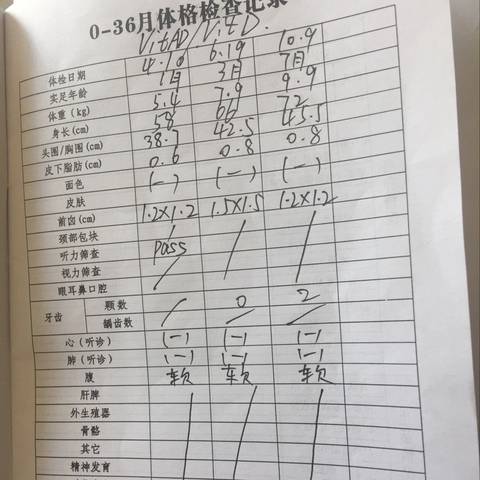 0-36月体格检查记录
VitAD/VitD.
体检日期 4.10 6.19 10.9
实足年龄 1月 3月 7月
体重(kg) 5.4 7.9 9.9
身长(cm) 58 66 72
头围/胸围(cm) 38.7 42.5 45.5
皮下脂肪(cm) 0.6 0.8 0.8
面色 (-) (-) (-)
皮肤
前囟(cm) 1.2×1.2 1.5×1.5 1.2×1.2
颈部包块
听力筛查 pass
视力筛查
眼耳鼻口腔
牙齿 颗数 0 2
龋齿数
心(听诊) (-) (-) (-)
肺(听诊) (-) (-) (-)
腹 软 软 软
肝脾
外生殖器
骨骼
其它
精神发育